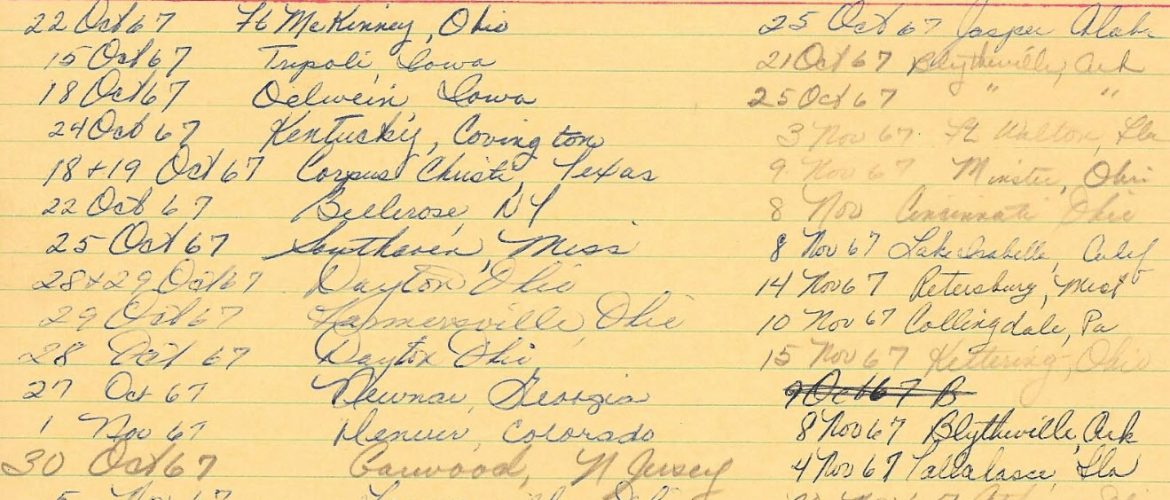 22 Oct 67 Ft McKinney, Ohio
15 Oct 67 Tripoli, Iowa
18 Oct 67 Oelwein Iowa
24 Oct 67 Kentucky, Covington
18 + 19 Oct 67 Corpus Christi, Texas
22 Oct 67 Bellerose, NY
25 Oct 67 Southaven, Miss
28 + 29 Oct 67 Dayton Ohio
29 Oct 67 Farmersville, Ohio
28 Oct 67 Dayton Ohio
27 Oct 67 Newnan, Georgia
1 Nov 67 Denver, Colorado
30 Oct 67 Garwood, N Jersey
5 Nov 67
25 Oct 67 Jasper Alaba
21 Oct 67 Blytheville, Ark
25 Oct 67 " "
3 Nov 67 Ft Walton, Fla
9 Nov 67 Minster, Ohio
8 Nov Cincinnati Ohio
8 Nov 67 Lake Isabella, Calif
14 Nov 67 Petersburg, Mich
10 Nov 67 Collingdale, Pa
15 Nov 67 Kettering, Ohio
9 Oct 67 B
8 Nov 67 Blytheville, Ark
4 Nov 67 Fla